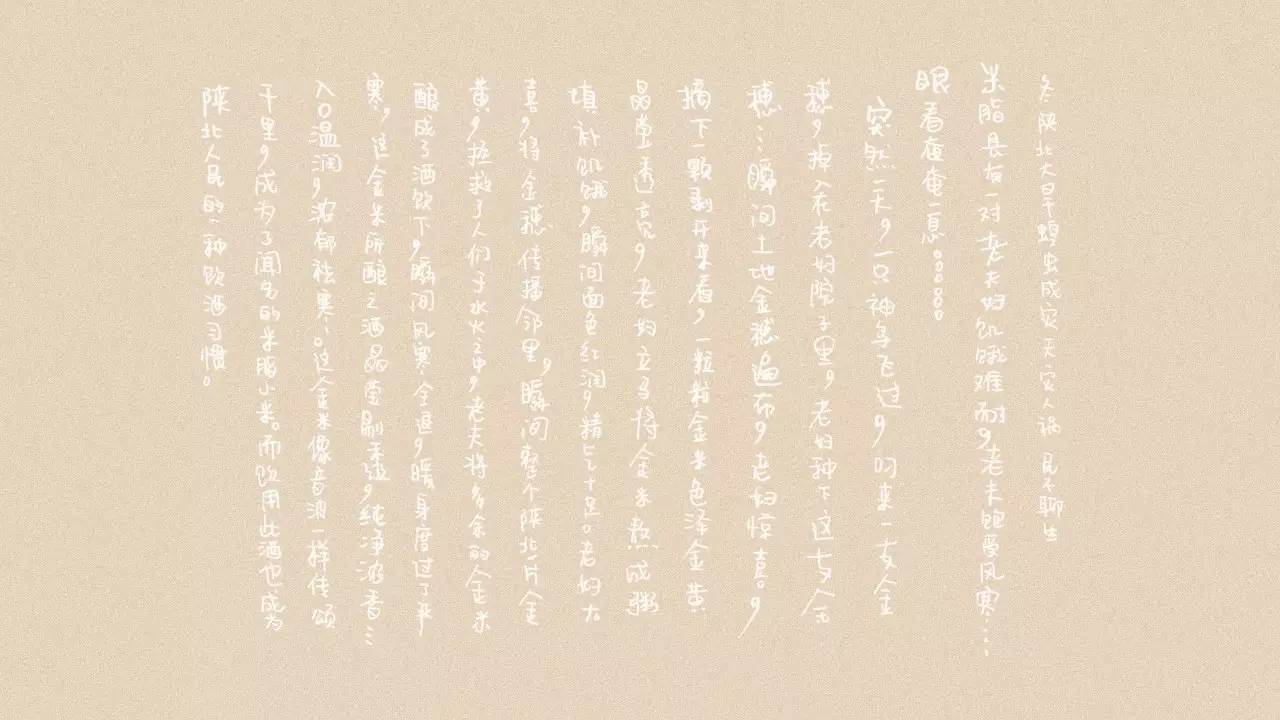 冬陕北大旱蝗虫成灾天灾人祸 民不聊生
米脂县有一对老夫妇饥饿难耐,老夫饱受风寒……
眼看奄奄一息。。。。。。
突然一天,一只神鸟飞过,叼来一支金
穗,掉入在老妇院子里,老妇种下这支金
穗…瞬间土地金穗遍布,老妇惊喜。,
摘下一颗剥开来看,一粒粒金米色泽金黄
晶莹透亮,老妇立马将金米熬成粥
填补饥饿,瞬间面色红润,精气十足。老妇大
喜,将金穗传播邻里,瞬间整个陕北一片金
黄,拯救了人们于水火之中,老夫将多余的金米
酿成了酒饮下,瞬间风寒全退,暖身度过了严
寒,这金米所酿之酒晶莹剔透,纯净浓香…
入口温润,浓郁祛寒…。这金米像音浪一样传颂
千里,成为了闻名的米脂小米。而饮用此酒也成为
陕北人民的一种饮酒习惯。